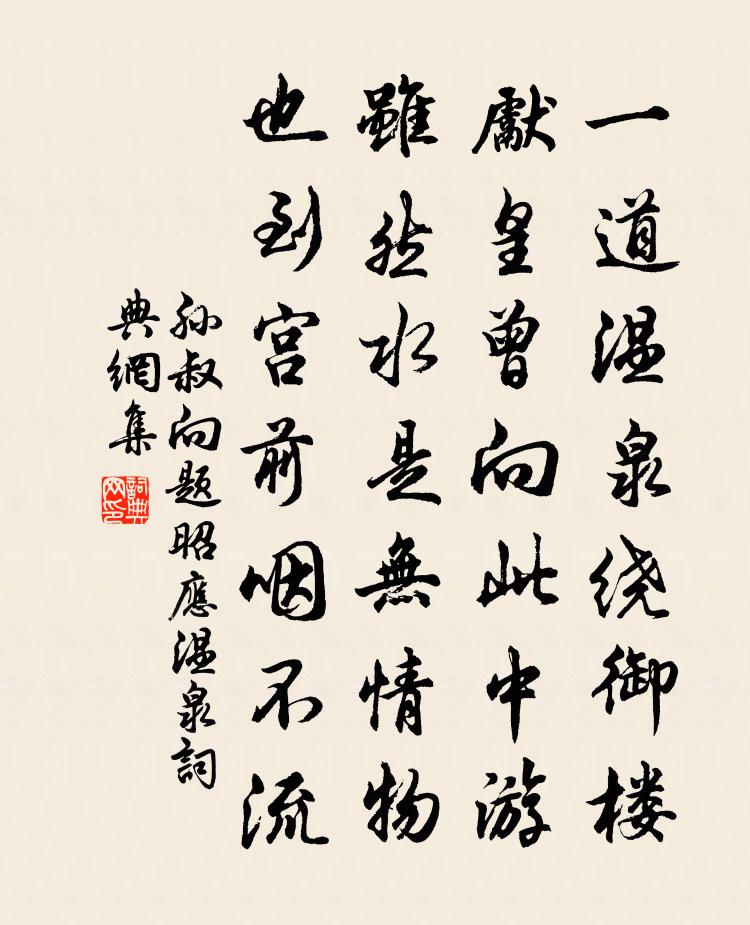 一道温泉绕御楼
獻皇曾向此中游
雖然水是無情物
也到宫前咽不流
孙叔向题昭應温泉詞
典網集
詞典
网印